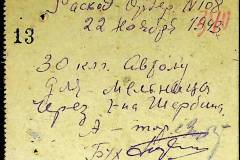 Расход. Ордер №108
22 Ноября 1943
13
30 клг. Автолу
для мельницы
через т-на Щербина
Бух